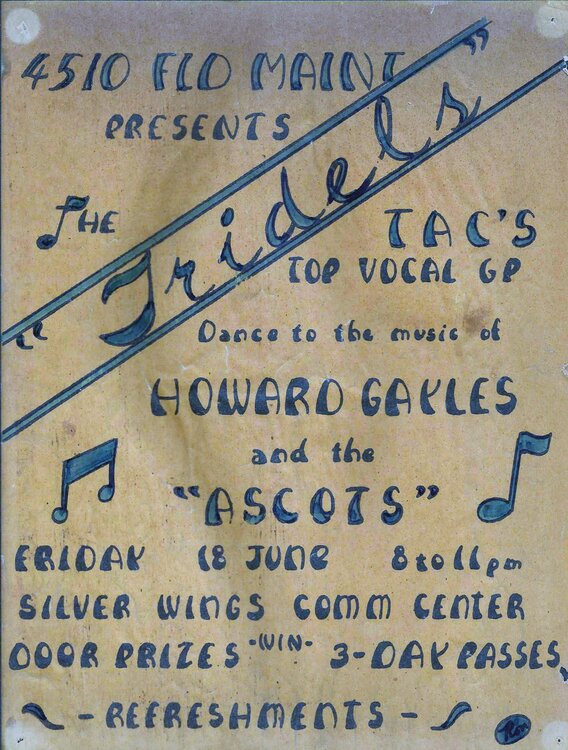 4510 FLD MAINT
PRESENTS
THE
"Tridels"
TAC'S
TOP VOCAL GP
Dance to the music of
HOWARD GAYLES
and the
"ASCOTS"
FRIDAY 18 JUNE 8 to 11 pm
SILVER WINGS COMM CENTER
DOOR PRIZES -WIN- 3-DAY PASSES
- REFRESHMENTS -
Ron